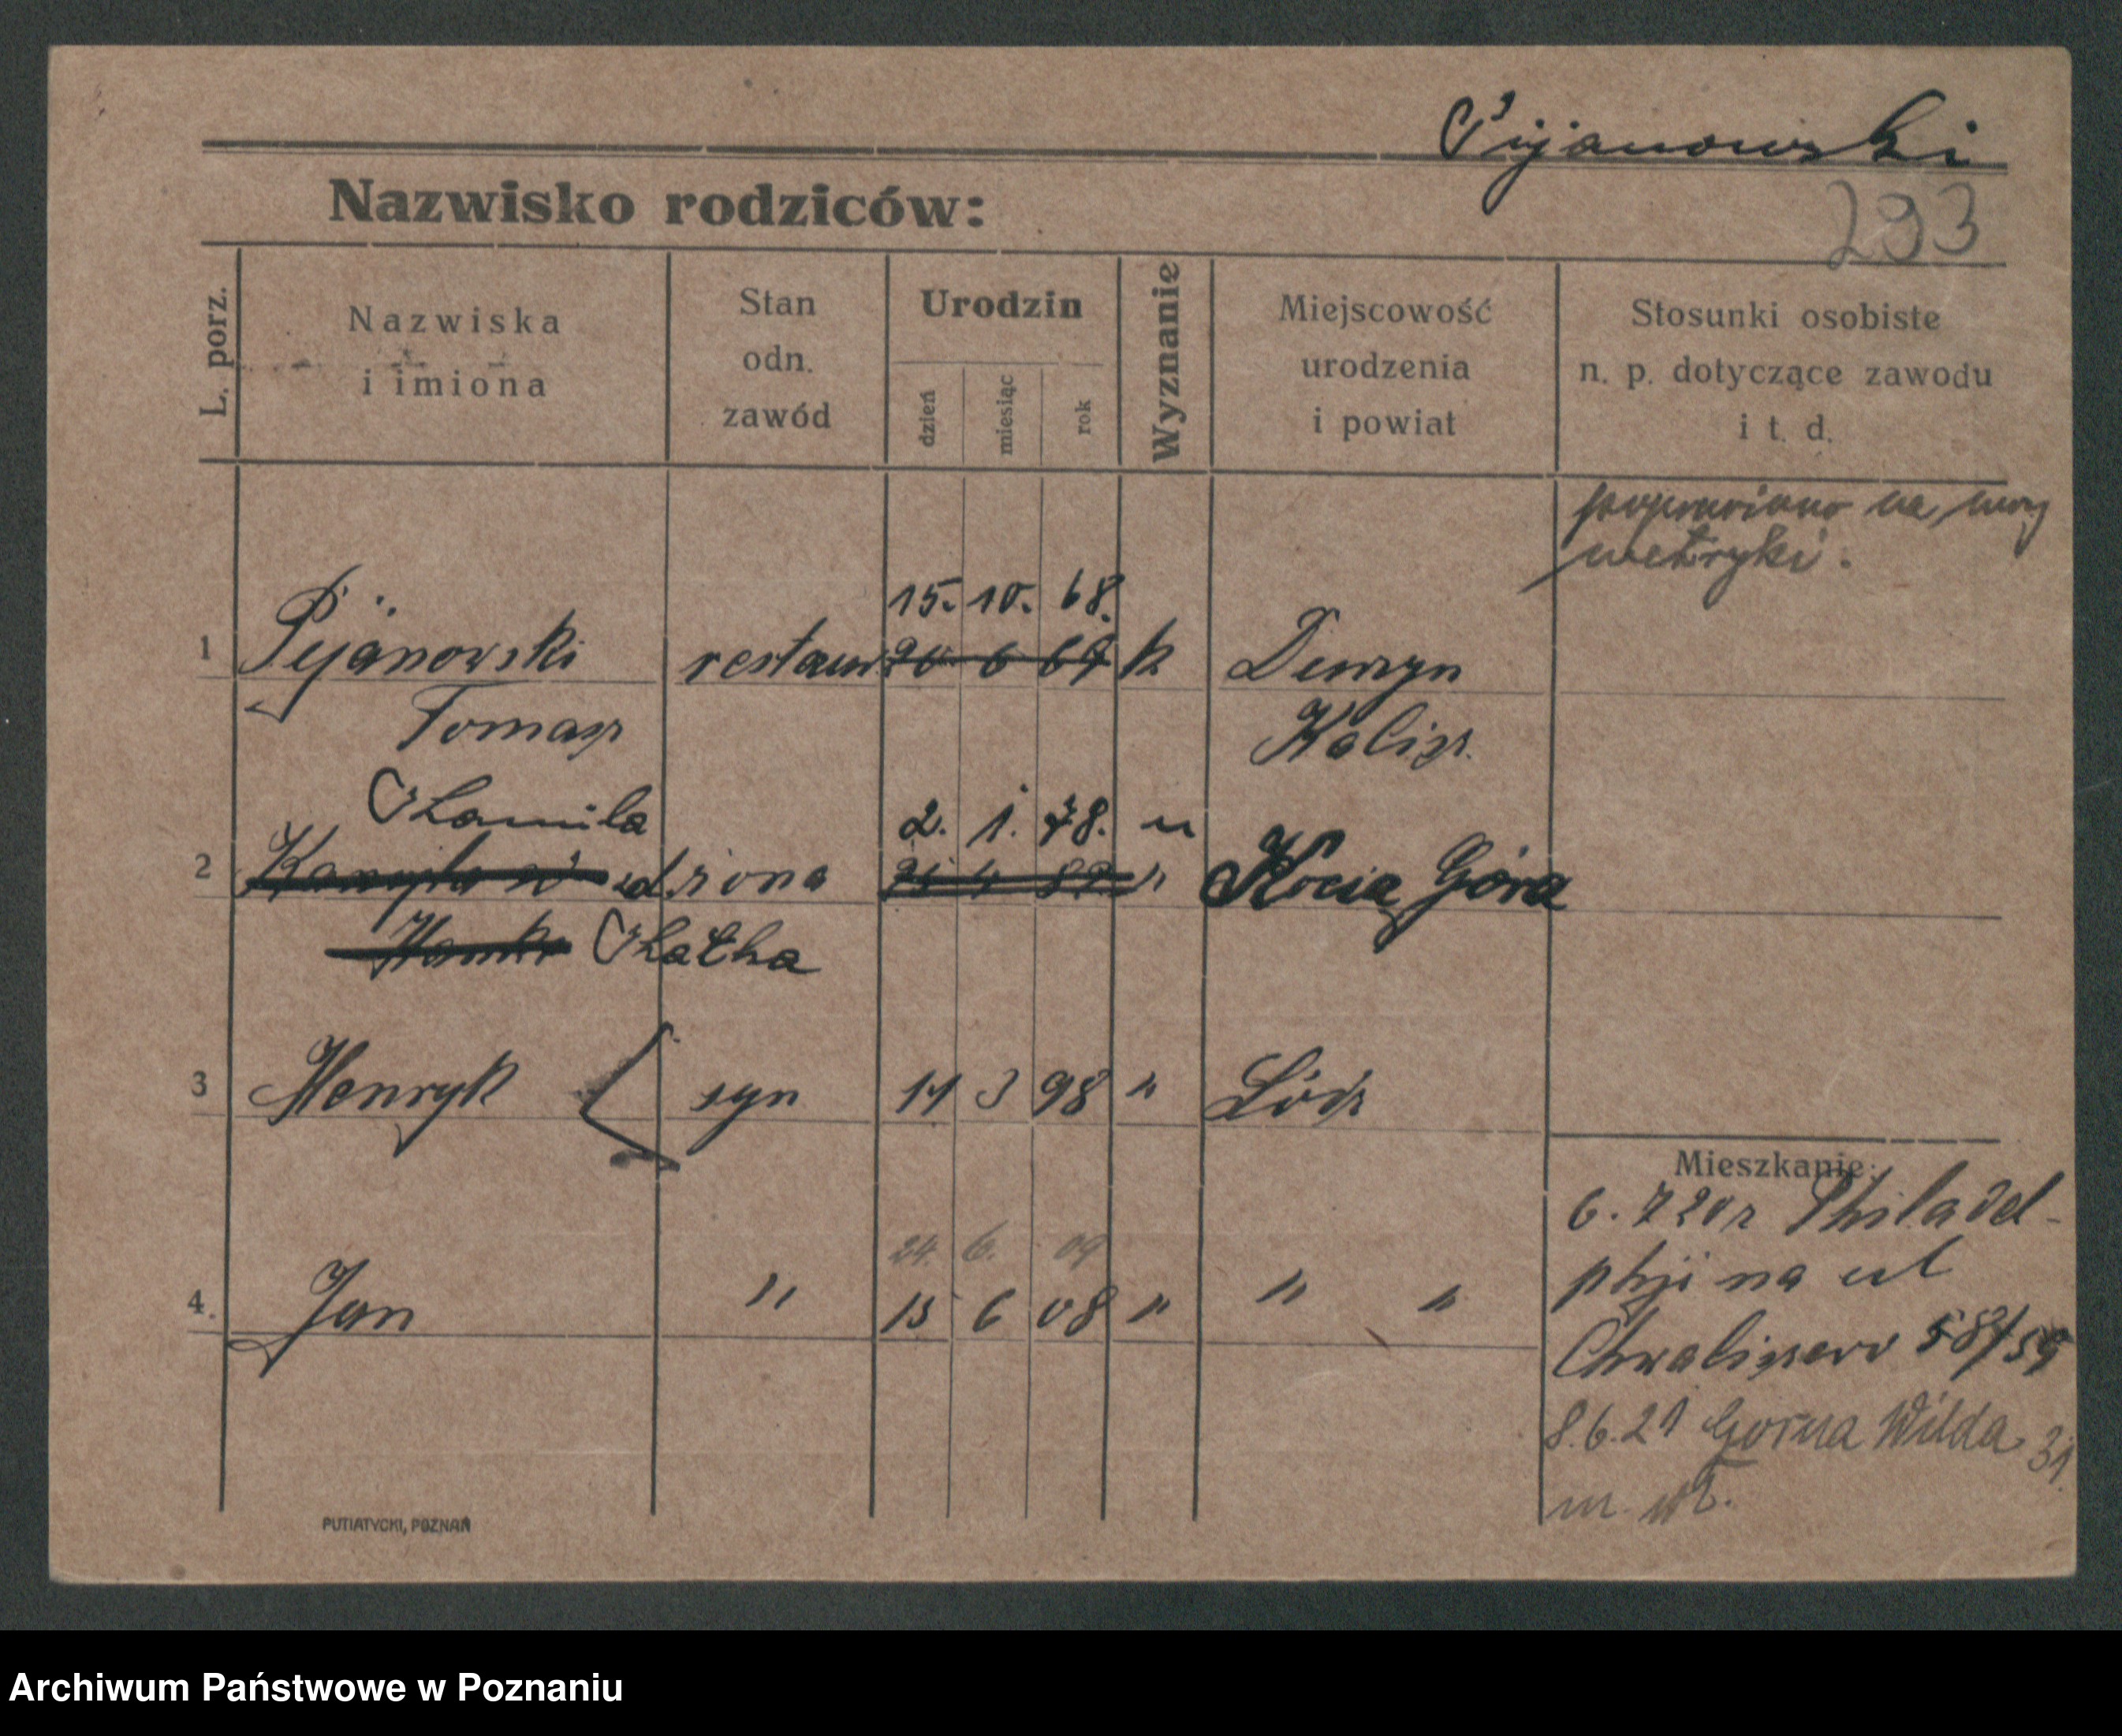 Pijanowski
Nazwisko rodziców:
293
L. porz.
Nazwiska
i imiona
Stan
odn.
zawód
Urodzin
dzień
miesiąc
rok
Wyznanie
Miejscowość
urodzenia
i powiat
Stosunki osobiste
n. p. dotyczące zawodu
i t. d.
poprawiono na mocy
metryki.
15. 10. 68.
1 Pijanowski restaur 20 6 67 k
Tomasz Kalisz.
Kamila 2. 1. 78. "
2 z d żona 21 4 82 " Kocia Góra
Kałka
3 Henryk syn 11 3 98 " Łódź
Mieszkanie:
6. 7 20 z Philadel-
phji na ul
24. 6. 09
4. Jan " 15 6 08 " " "
Chwaliszewo 58/59
8.6.21 Gorna Wilda 31.
m.
PUTIATYCKI, POZNAŃ
Archiwum Państwowe w Poznaniu